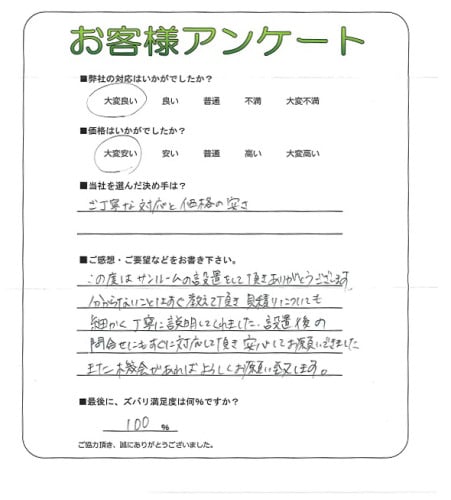 お客様アンケート
■弊社の対応はいかがでしたか？
大変良い 良い 普通 不満 大変不満
■価格はいかがでしたか？
大変安い 安い 普通 高い 大変高い
■当社を選んだ決め手は？
ご丁寧な対応と価格の安さ
■ご感想・ご要望などをお書き下さい。
この度はサンルームの設置をして頂きありがとうございます
分からないことはすぐ教えて頂き 見積りについても
細かく丁寧に説明してくれました。設置後の
問合せにもすぐに対応して頂き安心してお願いできました
また機会があればよろしくお願い致します。
■最後に、ズバリ満足度は何%ですか？
100 %
ご協力頂き、誠にありがとうございました。